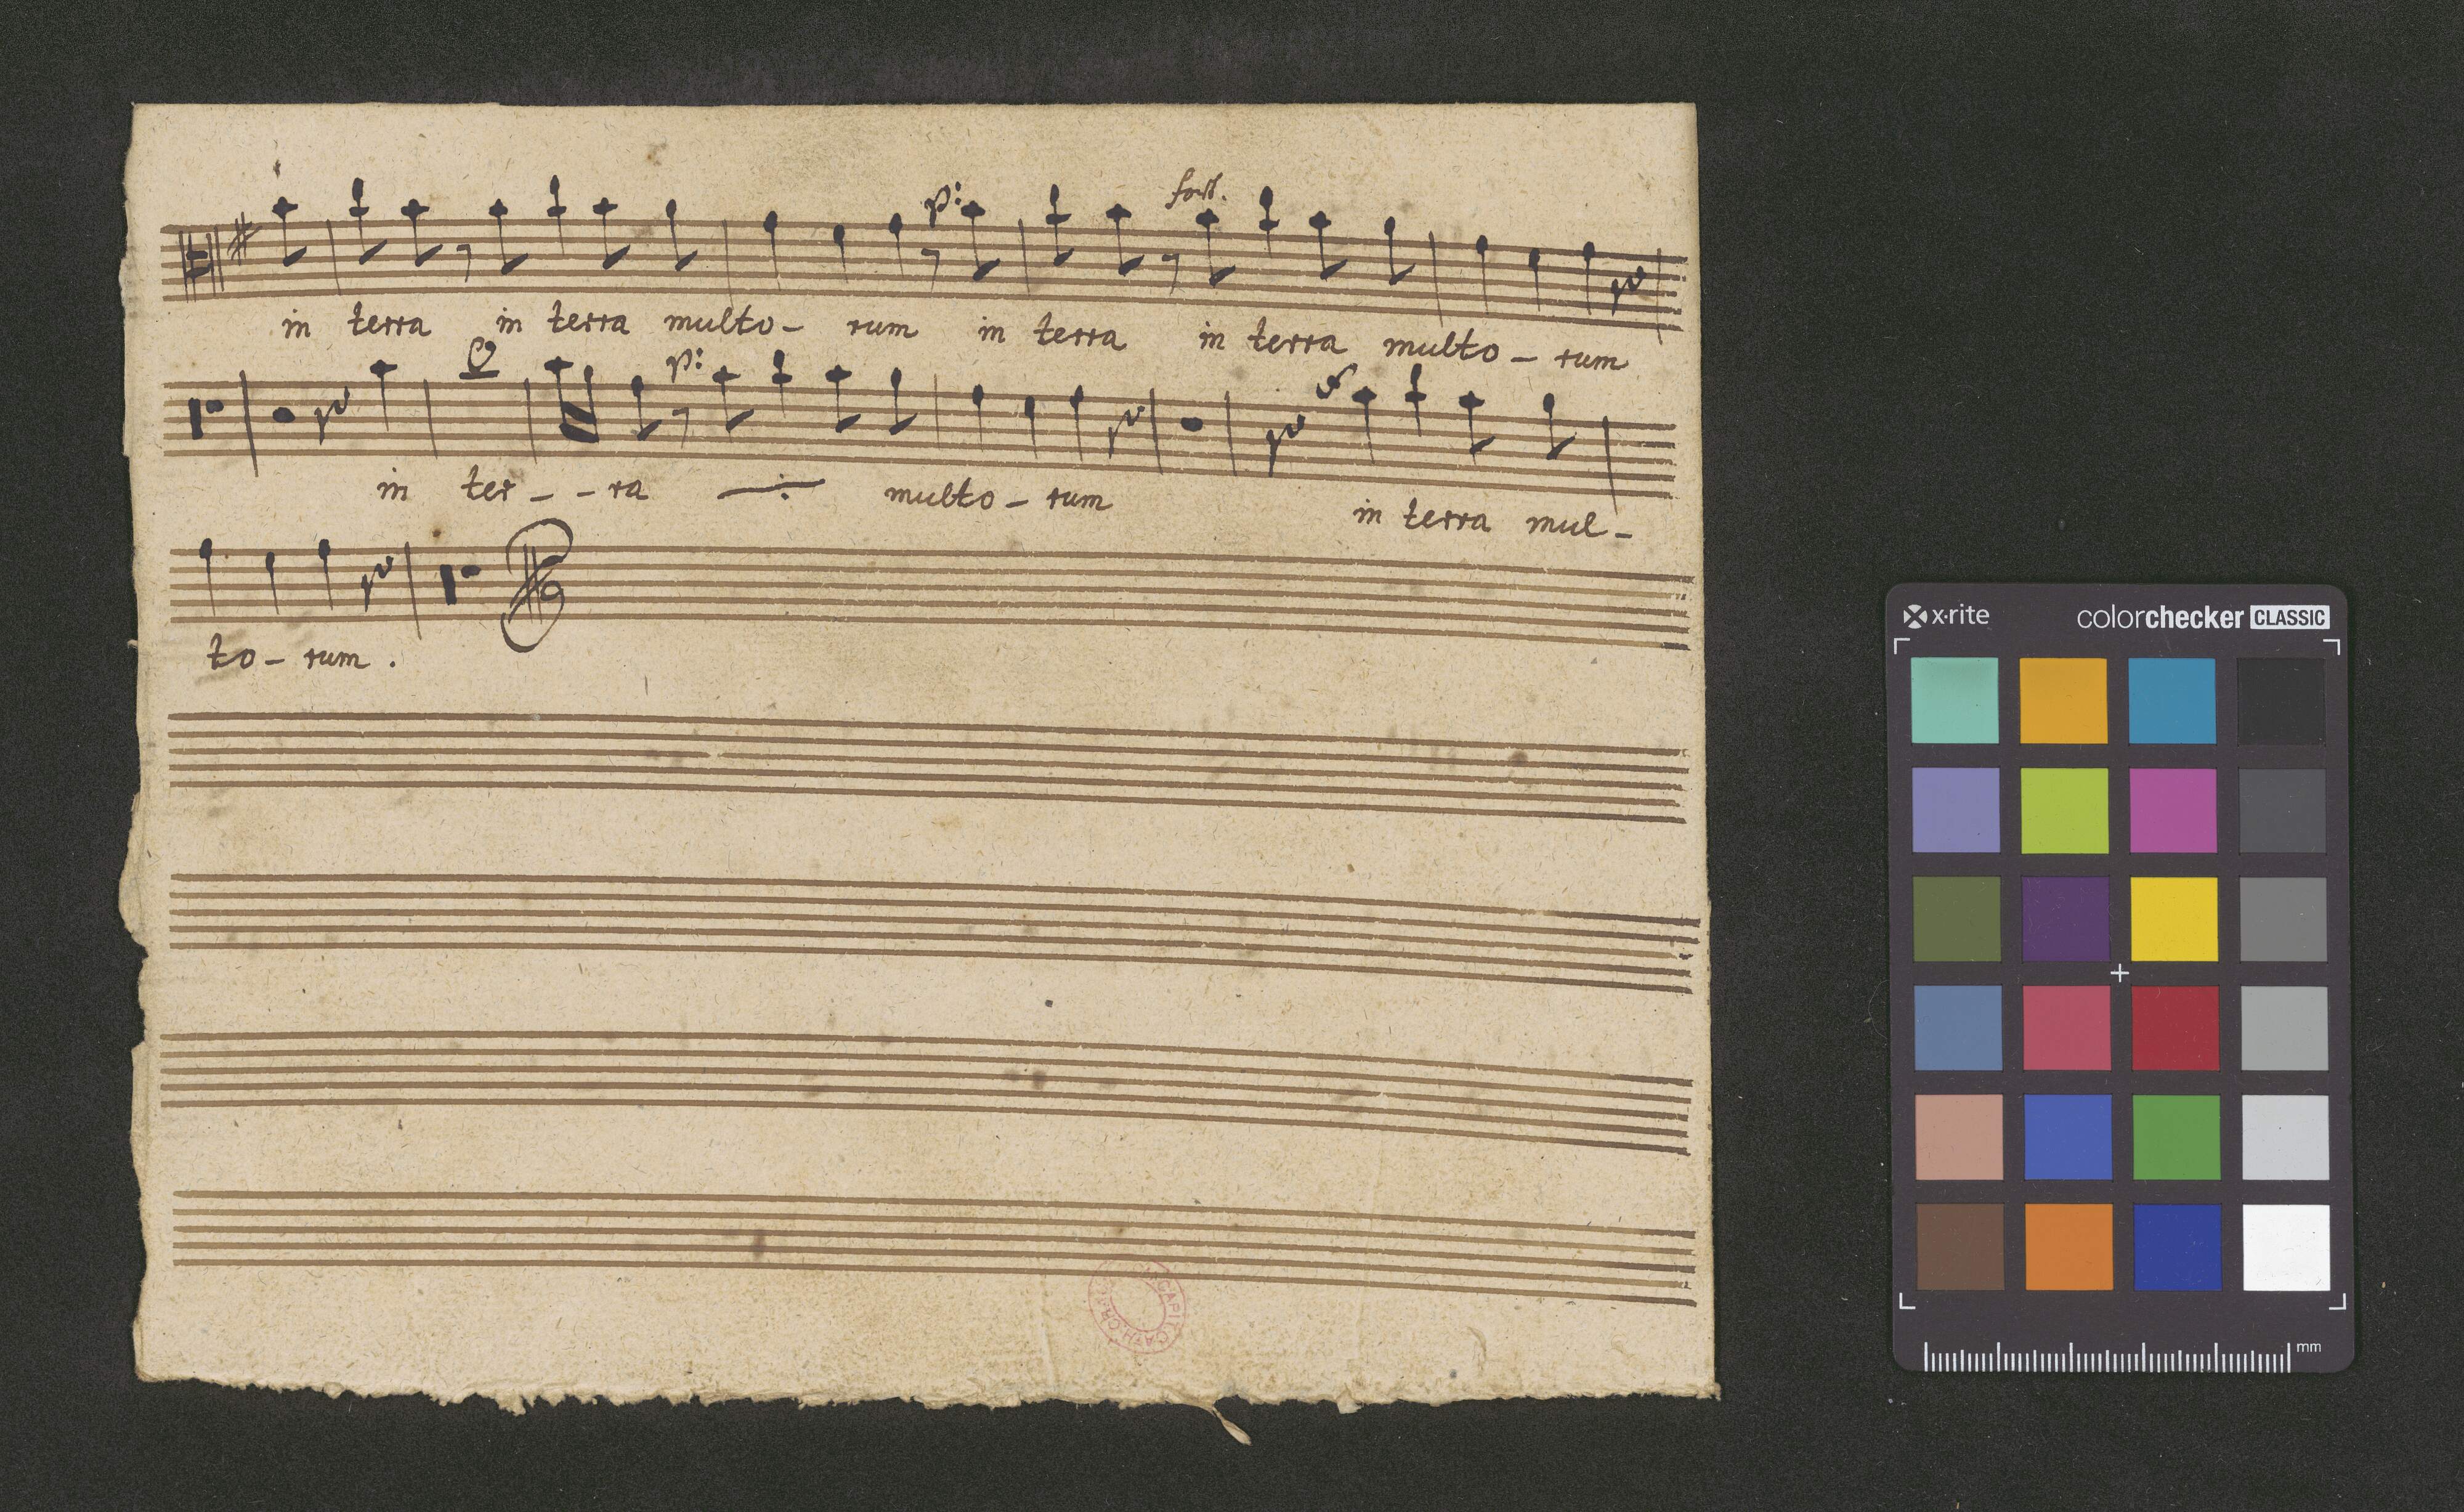 p: fort.
in terra in terra multo- rum in terra in terra multo - rum
p: f
in ter - - ra multo - rum in terra mul -
to - rum .
x·rite colorchecker CLASSIC
mm